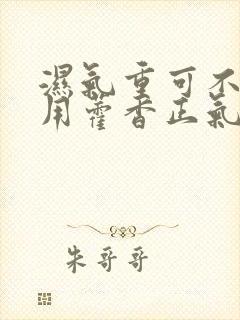 濕氣重可不
用藿香正氣
朱哥哥